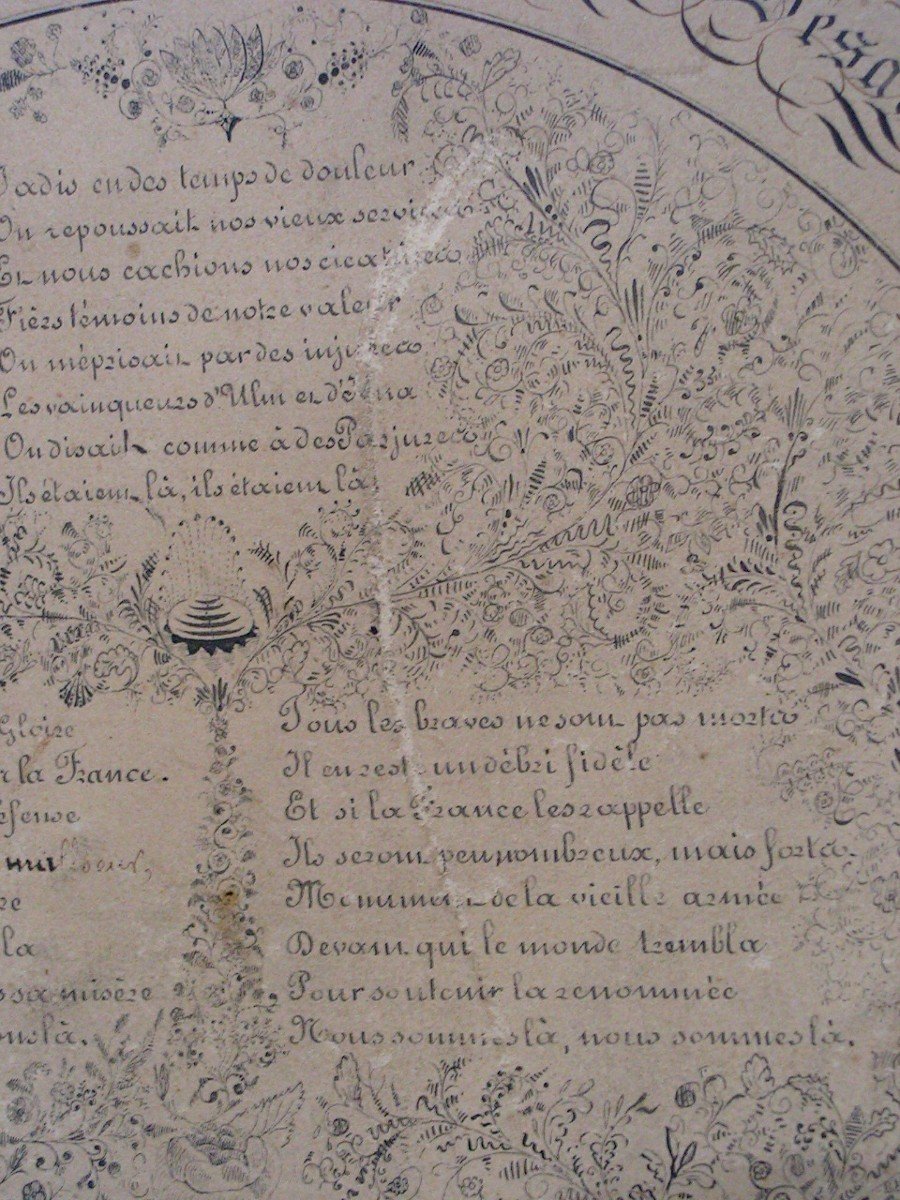 Jadis en des temps de douleur
On repoussait nos vieux services
Et nous cachions nos cicatrices
Fiers témoins de notre valeur
On méprisait par des injures
Les vainqueurs d'Ulm et d'Iéna
On disait comme à des Parjures
Ils étaient là, ils étaient là
Gloire
la France.
la
sa misère
là.
Tous les braves ne sont pas morts
Il en reste un débri fidèle
Et si la France les rappelle
Ils seront peu nombreux, mais forts.
Monument de la vieille armée
Devant qui le monde trembla
Pour soutenir la renommée
Nous sommes là, nous sommes là.